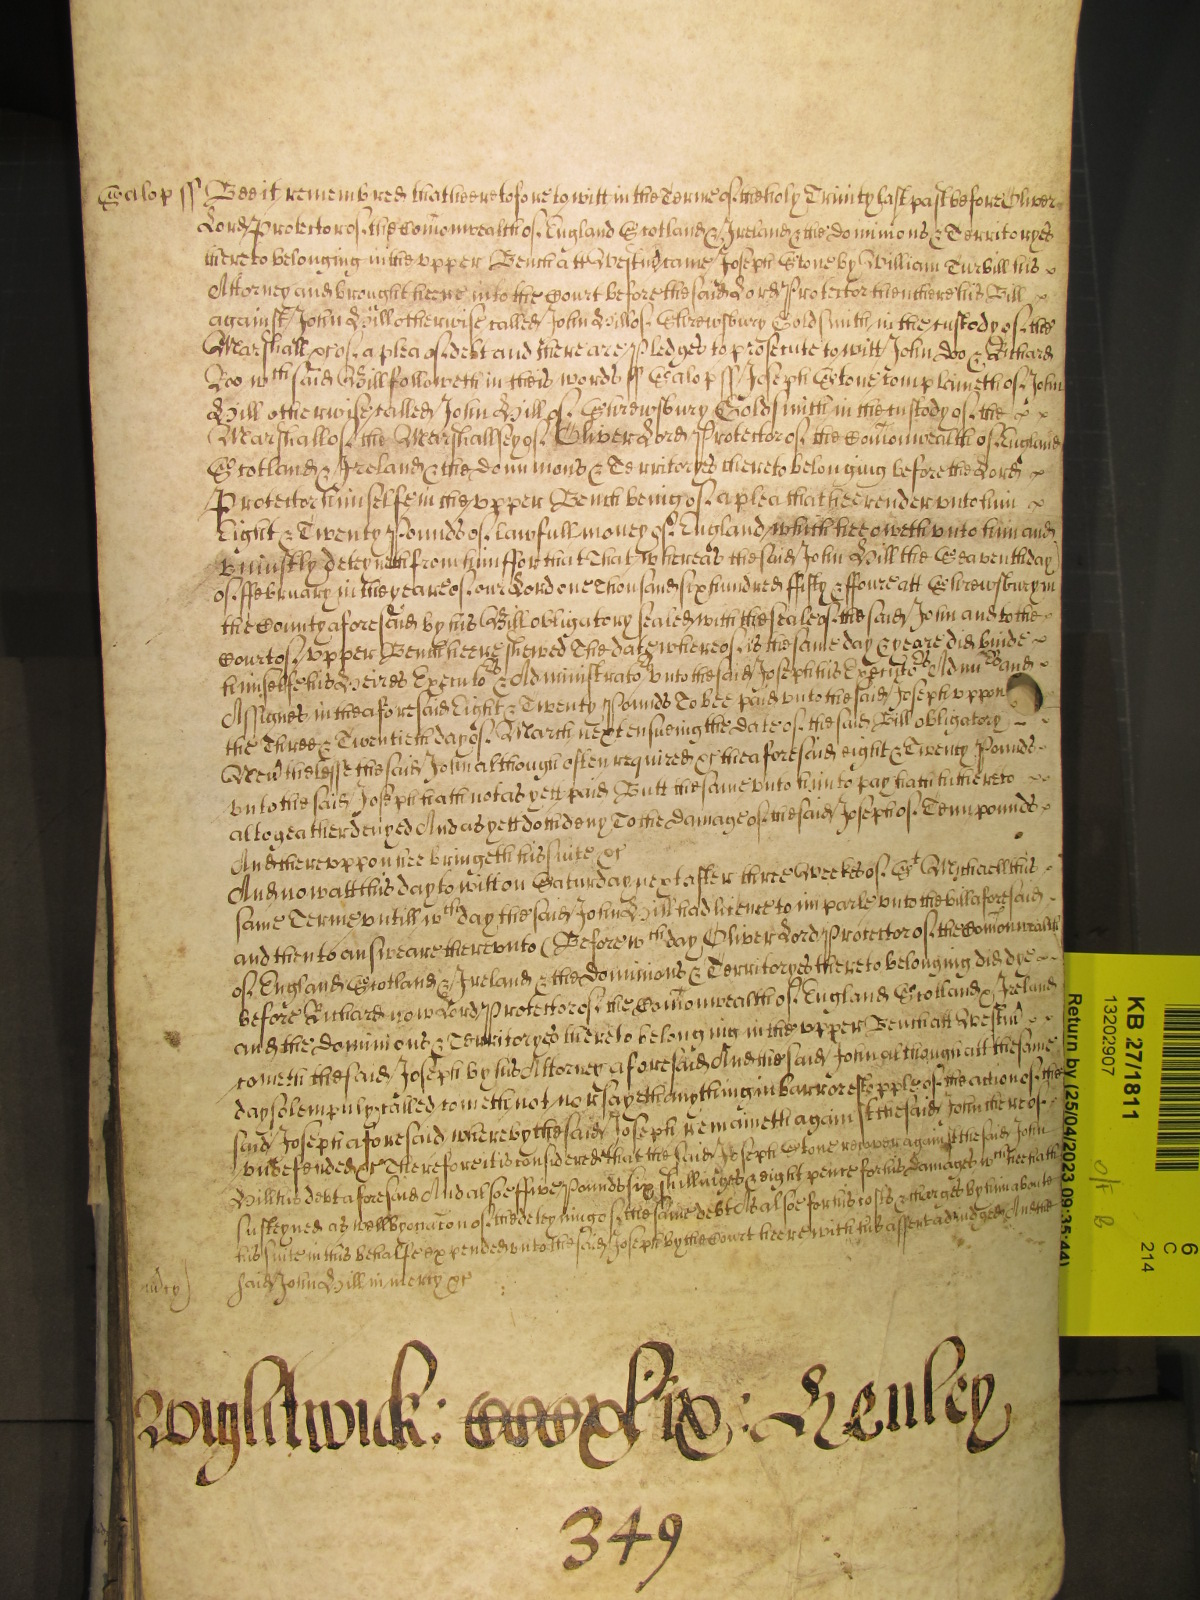 Salop ss Bee it remembred that heeretofore to witt in the Terme of the holy Trinity last past before Oliver
Lord Protector of the Comonwealth of England Scotland & Ireland & the dominions & Territoryes
thereto belonging in the vpper Bench att Westmr came Joseph Stone by William Turbill his
Attorney and brought heere into the Court before the said Lord Protector then there his Bill
against John Hill otherwise called John Hill of Shrewsbury Goldsmith in the custody of the
Marshall &c of a plea of debt and there are Pledges to prosecute to witt John Doo & Richard
Roo wch said Bill followeth in theis words ss Salop ss Joseph Stone complaineth of John
Hill otherwise called John Hill of Shrewsbury Goldsmith in the custody of the
Marshall of the Marshallsey of Oliver Lord Protector of the Comonwealth of England
Scotland & Ireland & the dominions & Territoryes thereto belonging before the Lord
Protector himselfe in the vpper Bench being of a plea that hee render vnto him
Eight & Twenty Pounds of lawfull money of England which hee oweth vnto him and
vniustly deteyneth from him ffor that That whereas the said John Hill the Seaventh day
of ffebruary in the yeare of our Lord one Thousand six hundred ffifty & ffoure att Shrewsbury in
the County aforesaid by his Bill obligatory sealed with the seale of the said John and to the
Court of vpper Bench heere shewed The date whereof is the same day & yeare did binde
himselfe his Heires Executors & Administrators vnto the said Joseph his Executors Adminrs and
Assignes in the aforesaid Eight & Twenty Pounds To bee paid vnto the said Joseph vppon
the Three & Twentieth day of March next ensueing the date of the said Bill obligatory
Neverthelesse the said John although often required &c the aforesaid eight & Twenty Pounds
vnto the said Joseph hath not as yett paid Butt the same vnto him to pay hath hithereto
altogeather denyed And as yett doth deny To the damage of the said Joseph of Tenn pounds
And therevppon hee bringeth his suite &c
And now att this day to witt on Saturday next after three Weekes of St Michaell this
same Terme vntill wch day the said John Hill had licence to imparle vnto the bill aforesaid
and then to answeare therevnto (Before wch day Oliver Lord Protector of the Comonwealth
of England Scotland & Ireland & the Dominions & Territoryes thereto belonging did dye
before Richard now Lord Protector of the Comonwealth of England Scotland & Ireland
and the dominions & Territoryes thereto belonging in the vpper Bench att Westmr
cometh the said Joseph by his Attorney aforesaid And the said John although att the same
day solempnly called cometh not nor sayeth anything in barr or stopple of the action of the
said Joseph aforesaid whereby the said Joseph remaineth against the said John thereof
vndefended &c Therefore it is considered that the said Joseph Stone recover against the said John
Hill his debt aforesaid And alsoe ffive Pounds six shillinges & eight pence for his damages wch hee hath
susteyned as well by occacon of the deteyning of the same debt As alsoe for his costs & charges by him aboute
his suite in this behalfe expended vnto the said Joseph by the Court heere with his assent adiudged And the
mercy) said John Hill in mercy &c
Wightwick: xlix: Henley
349
KB 27/1811
13202907
Return by (25/04/2023 09:35:44)
6
C
214